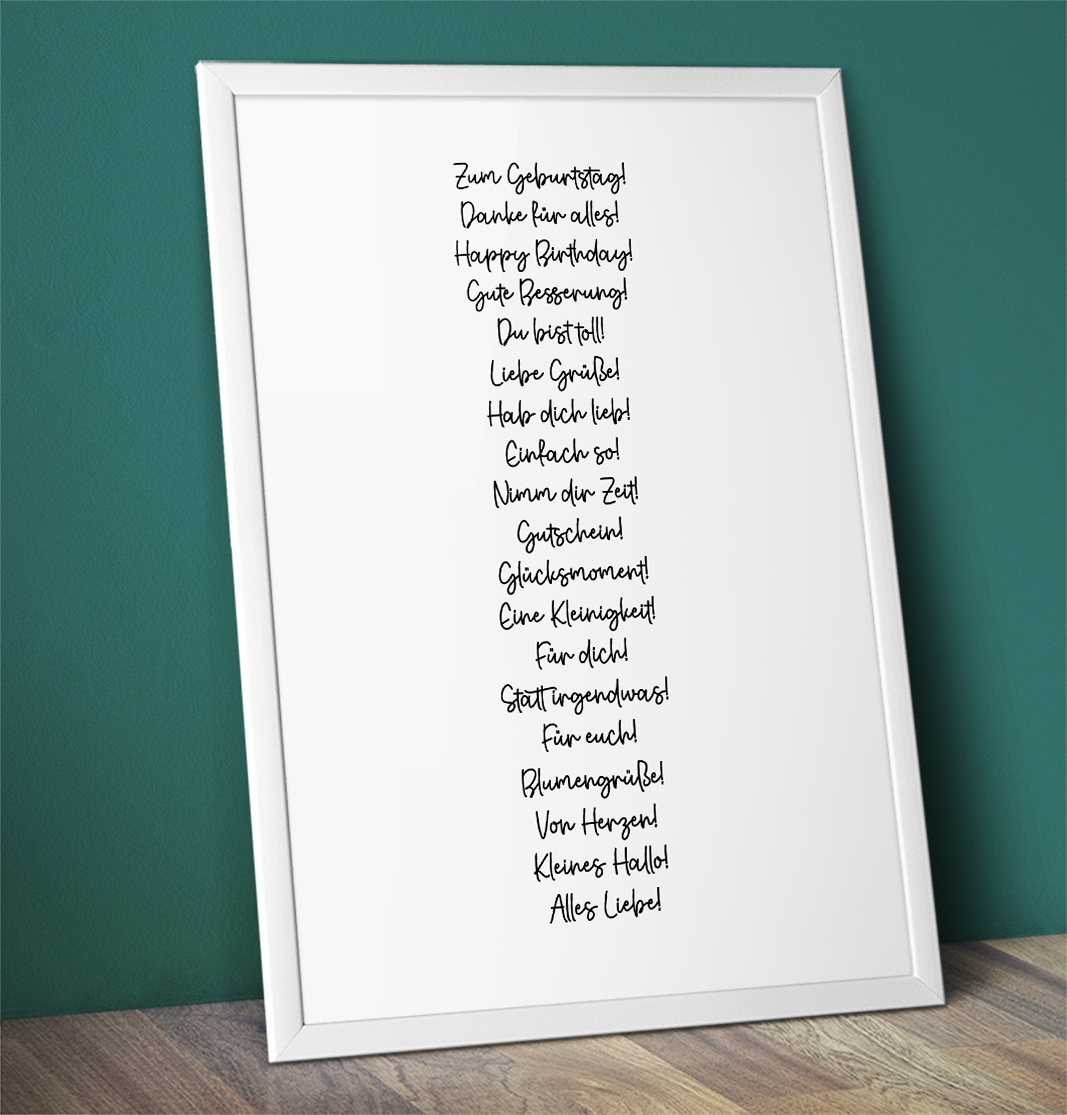 Zum Geburtstag!
Danke für alles!
Happy Birthday!
Gute Besserung!
Du bist toll!
Liebe Grüße!
Hab dich lieb!
Einfach so!
Nimm dir Zeit!
Gutschein!
Glücksmoment!
Eine Kleinigkeit!
Für dich!
Statt irgendwas!
Für euch!
Blumengrüße!
Von Herzen!
Kleines Hallo!
Alles Liebe!